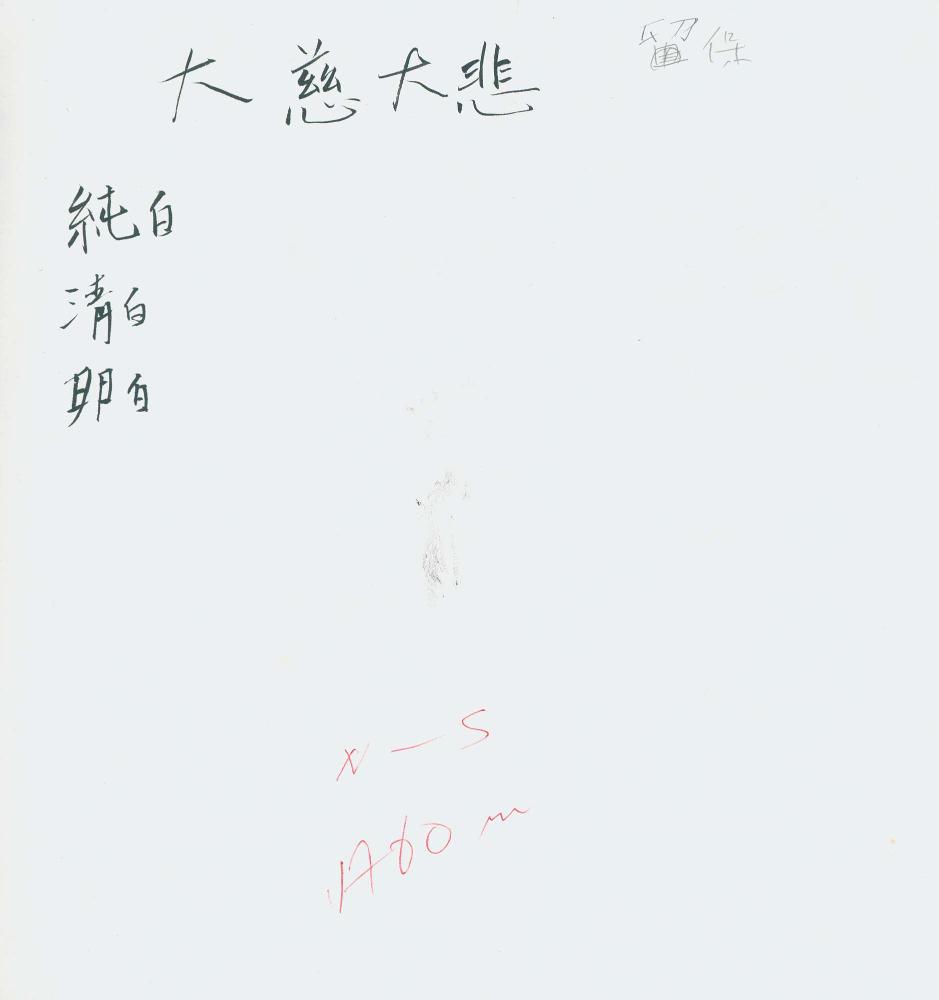 大慈大悲
留保
純白
清白
明白
N-S